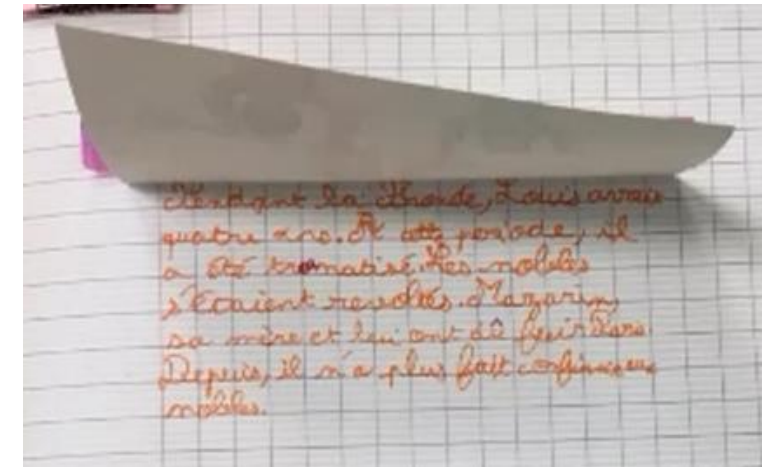 Pendant la Fronde, Louis avait
quatre ans. A cette période, il
a été tromatisé. Les nobles
s'étaient revoltés. Mazarin,
sa mère et lui ont dû fuir Paris
Depuis, il n'a plus fait confiance aux
nobles.